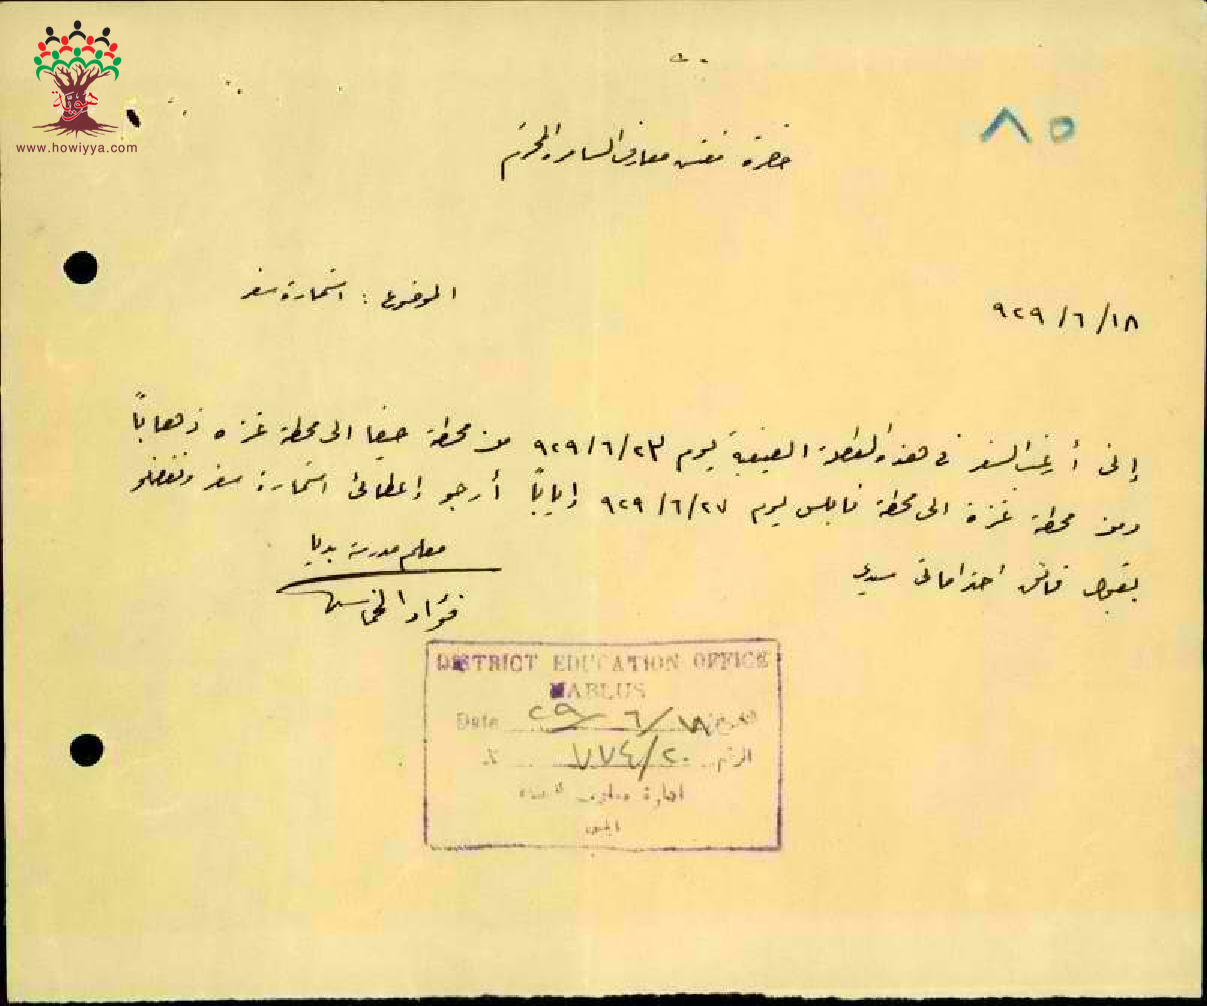 هوية
www.howiyya.com
٨٥
حضرة مفتش معارف السامرة المحترم
١٨/٦/٩٢٩
الموضوع : استمارة سفر
إني أرغب السفر في هذه العطلة الصيفية يوم ٢٣/٦/٩٢٩ من محطة حيفا الى محطة غزه ذهاباً
ومن محطة غزة الى محطة نابلس يوم ٢٧/٦/٩٢٩ إياباً أرجو إعطائي استمارة سفر وتفضلو
بقبول فائق احتراماتي سيدي
معلم مدرسة بديا
فؤاد الخماش
DISTRICT EDUCATION OFFICE
NABLUS
Date ١٨/٦/٢٩ التاريخ
الرقم ٧٧٤/٢٠
ادارة معارف لواء
نابلس